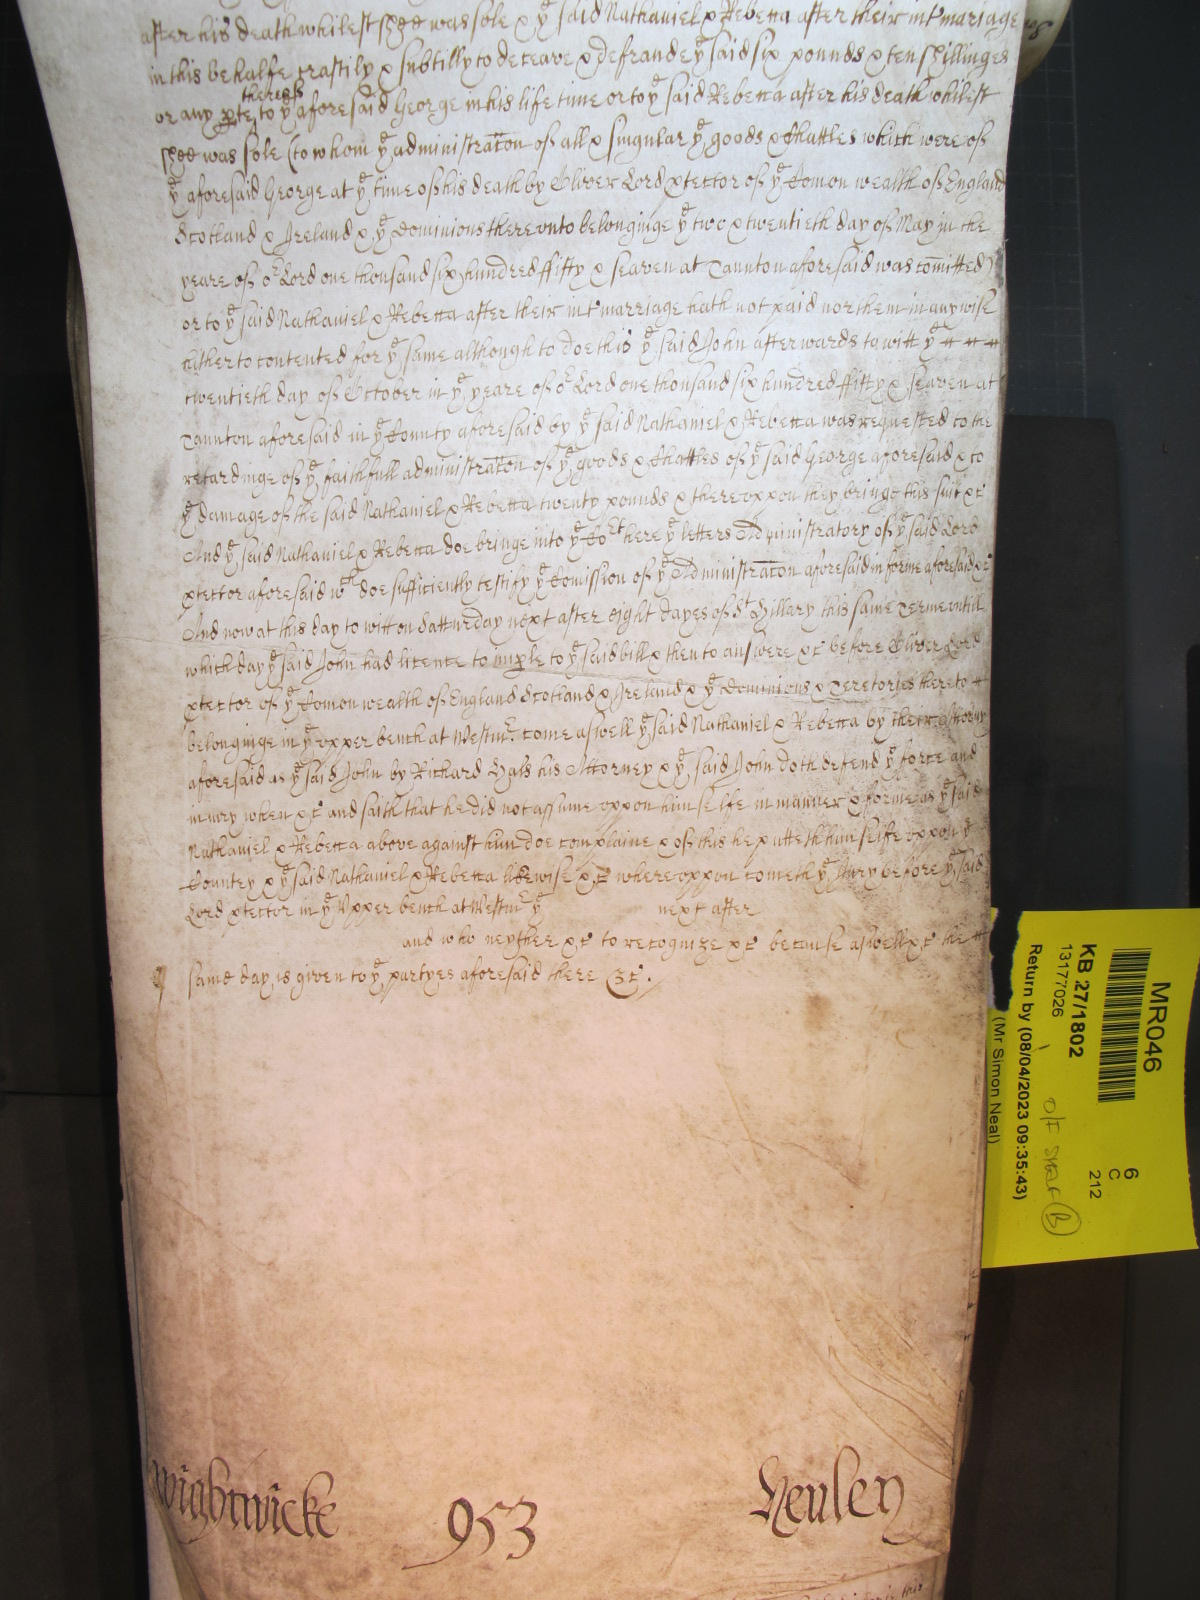 after his death whilest shee was sole & ye said Nathaniel & Rebecca after their intmariage
in this behalfe craftily & subtilly to deceave & defraude ye said six pounds & ten shillinges
thereof
or any pte to ye aforesaid George in his life time or to ye said Rebecca after his death whilest
shee was sole (to whom ye administracon of all & singular ye goods & Chattles which were of
ye aforesaid George at ye time of his death by Oliver Lord ptector of ye Comon wealth of England
Scotland & Ireland & ye Dominions thereunto belonginge ye two & twentieth day of May in the
yeare of or Lord one thousand six hundred fifty & seaven at Taunton aforesaid was comitted)
or to ye said Nathaniel & Rebecca after their intmarriage hath not paid nor them in any wise
hitherto contented for ye same although to doe this ye said John afterwards to witt ye
twentieth day of October in ye yeare of or Lord one thousand six hundred fifty & seaven at
Taunton aforesaid in ye County aforesaid by ye said Nathaniel & Rebecca was requested to the
retardinge of ye faithfull administracon of ye goods & Chattles of ye said George aforesaid & to
ye damage of the said Nathaniel & Rebecca twenty pounds & thereuppon they bringe this suit &c
And ye said Nathaniel & Rebecca doe bringe into ye Cort here ye letters Administratory of ye said Lord
ptector aforesaid wch doe sufficiently testify ye Comission of ye Administracon aforesaid in forme aforesaid &c
And now at this day to witt on Satturday next after eight dayes of St Hillary this same Terme untill
which day ye said John had licence to imple to ye said bill & then to answere &c before Oliver Lord
ptector of ye Comon wealth of England Scotland & Ireland & ye Dominions & Teretories thereto
belonginge in ye upper bench at Westmr. come aswell ye said Nathaniel & Rebecca by their Attorny
aforesaid as ye said John by Richard Hals his Attorney & ye said John doth defend ye force and
iniury when &c and saith that he did not assume uppon himselfe in manner & forme as ye said
Nathaniel & Rebecca above against him doe complaine & of this he putteth himselfe uppon ye
Countey & ye said Nathaniel & Rebecca likewise &c whereuppon cometh ye Jury before ye said
Lord ptector in ye Upper bench at Westmr ye next after
and who neyther &c to recognize &c because aswell &c the
same day is given to ye partyes aforesaid there &c.
Wightwicke 953 Henley
MR046
KB 27/1802
13177026
Return by (08/04/2023 09:35:43)
(Mr Simon Neal)
6
C
212
O/F SHELF B